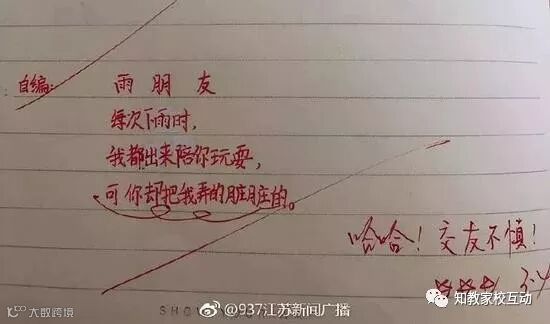 自编: 雨朋友
每次下雨时,
我都出来陪你玩耍,
可你却把我弄的脏脏的。
哈哈!交友不慎!
☆☆☆ 3.4
SHO
@937江苏新闻广播
大数跨境
知教家校互动